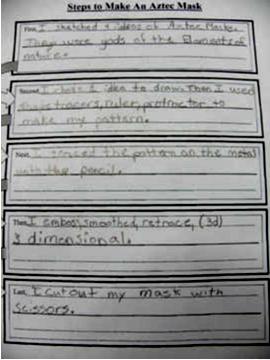 Steps to Make An Aztec Mask
First, I sketched 4 ideas of Aztec Mask.
They were gods of the Elements of
nature.
Second, I chose 1 idea to draw. Then I used
tracers, ruler, protractor to
make my pattern.
Next, I traced the pattern on the metal
with the pencil.
Then, I emboss, smoothed, retrace, (3d)
3 dimensional.
Last, I cut out my mask with
scissors.